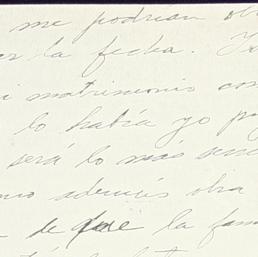 me podrían ob
la fecha.
i matrimonio con
lo había yo
será lo más senc
además obra
de que la fam